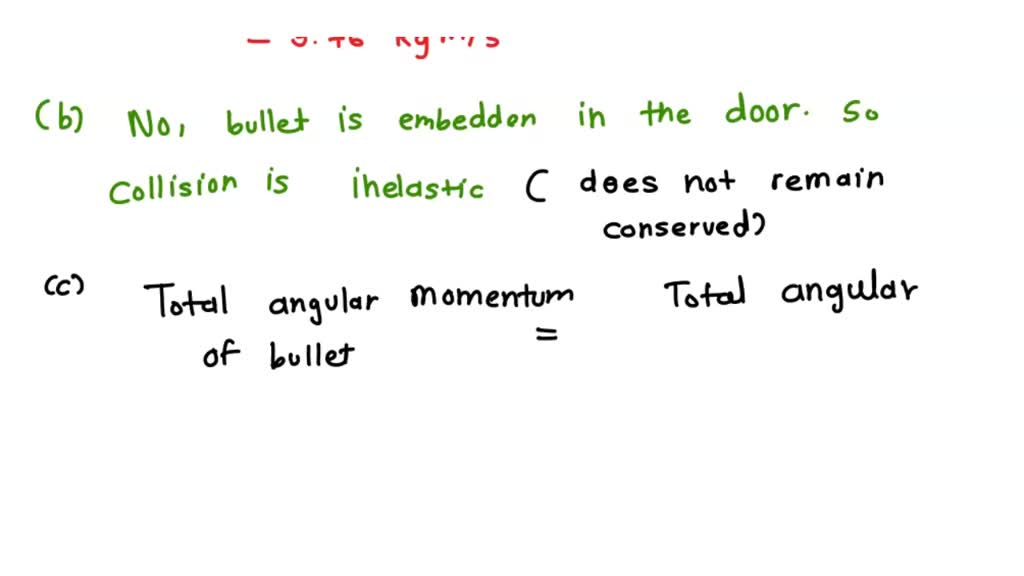 (b) No, bullet is embeddon in the door. So
collision is ihelastic ( does not remain
conserved)
(c) Total angular momentum Total angular
of bullet =